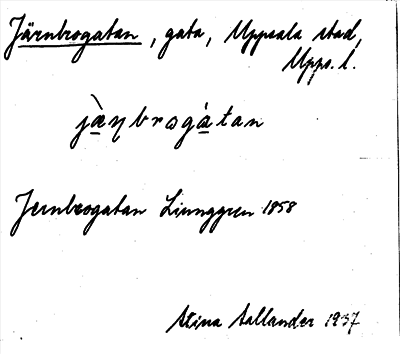 Järnbrogatan, gata, Uppsala stad,
Upps. l.
jæ̀ŋbrɷgátan
Jernbrogatan Ljunggren 1858
Stina Sallander 1937